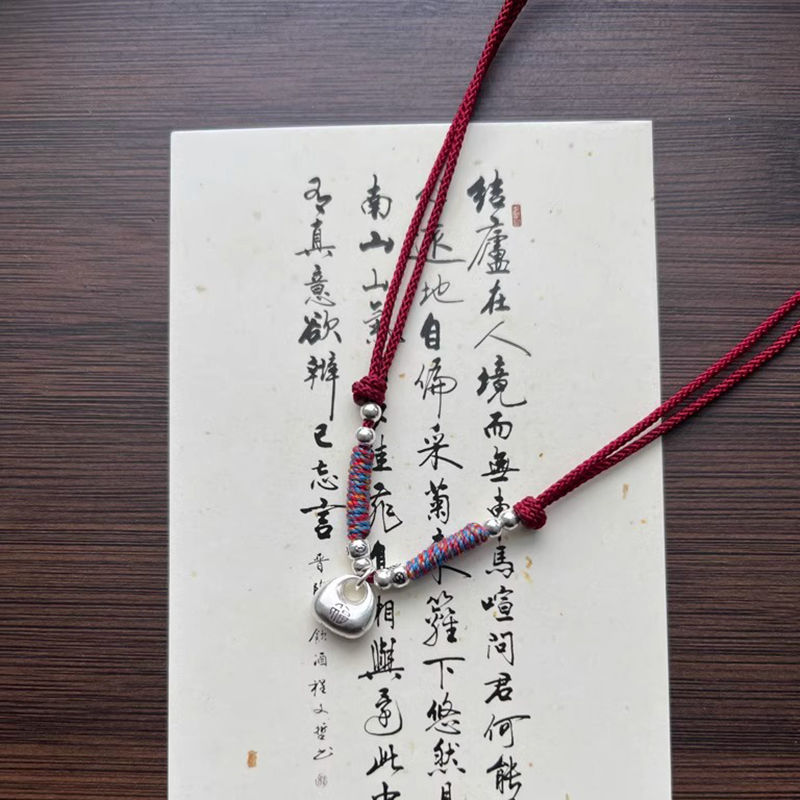 结廬在人境而無車馬喧問君何能
遠地自偏采菊東籬下悠然見
南山山氣佳飛鳥相與還此中
有真意欲辨已忘言
晋飲酒程文哲书
福